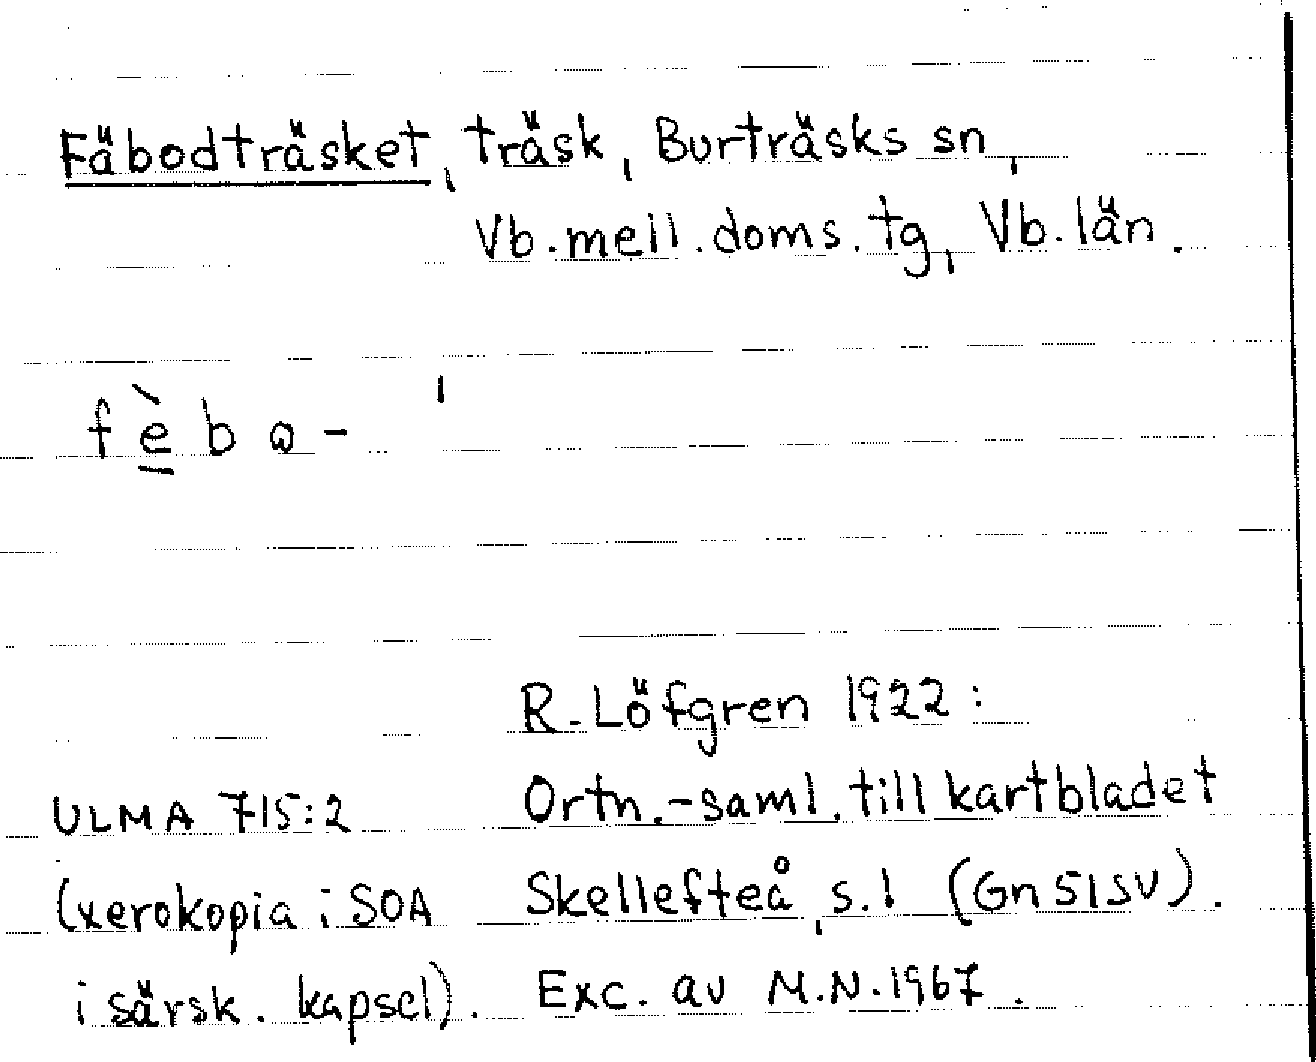 Fäbodträsket, träsk, Burträsks sn,
Vb. mell. doms. tg, Vb. län.
fèbo-
R. Löfgren 1922:
ULMA 715:2 Ortn.-saml. till kartbladet
(xerokopia i SOA Skellefteå, s. 1 (Gn 51 SV).
i särsk. kapsel). Exc. av M.N. 1967.